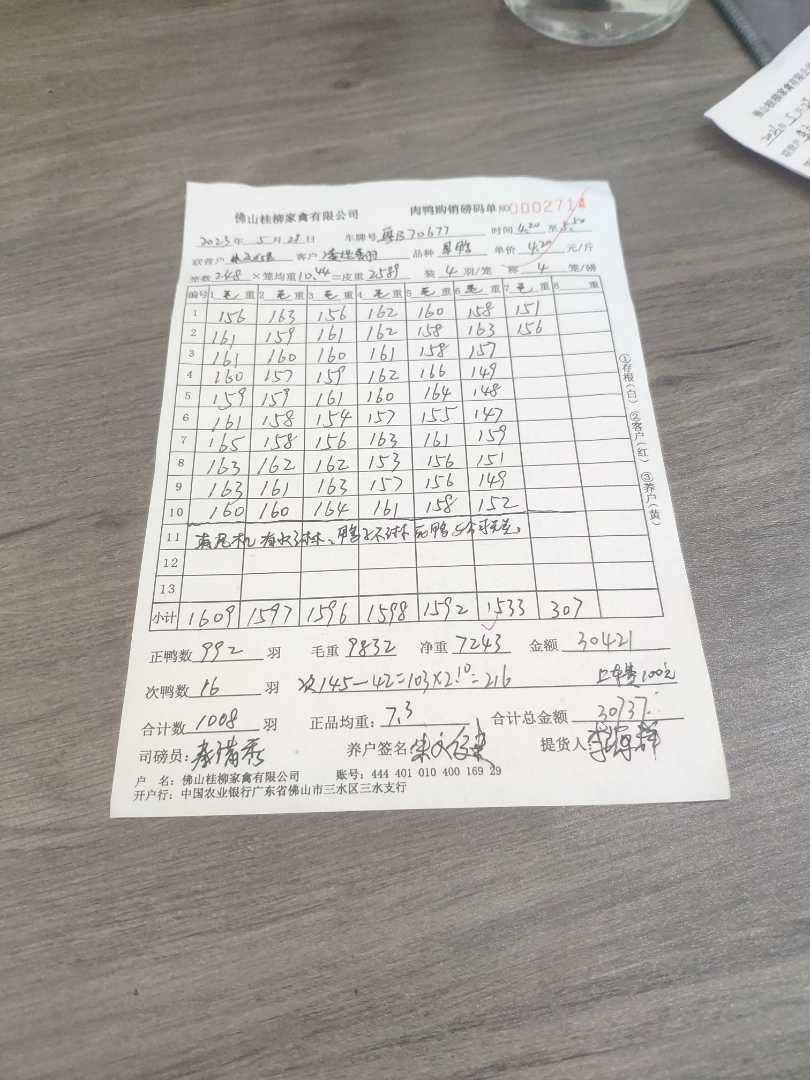 佛山桂柳家禽有限公司 肉鸭购销磅码单 NO 0002714
2023年 5月 28日 车牌号 粤B70677 时间 4.20 至 5.50
联营户 客户 品种 单价 4.20 元/斤
笼数 248 ×笼均重 10.44 =皮重 2589 装 4 羽/笼 称 4 笼/磅
编号 1 毛 重 2 毛 重 3 毛 重 4 毛 重 5 毛 重 6 毛 重 7 毛 重 8 重
1 156 163 156 162 160 158 151
2 161 159 161 162 158 163 156
3 161 160 160 161 158 157
4 160 157 159 162 166 149
5 159 159 161 160 164 148
6 161 158 154 157 155 147
7 165 158 156 163 161 159
8 163 162 162 153 156 151
9 163 161 163 157 156 149
10 160 160 164 161 158 152
11
12
13
小计 1609 1597 1596 1598 1592 1533 307
正鸭数 992 羽 毛重 9832 净重 7243 金额 30421
次鸭数 16 羽 次145-42=103×2.10=216 上车费100元
合计数 1008 羽 正品均重: 7.3 合计总金额 30737
司磅员: 养户签名: 提货人:
户 名: 佛山桂柳家禽有限公司 账号: 444 401 010 400 169 29
开户行: 中国农业银行广东省佛山市三水区三水支行
①存根(白) ②客户(红) ③养户(黄)
佛山桂柳家禽有限公